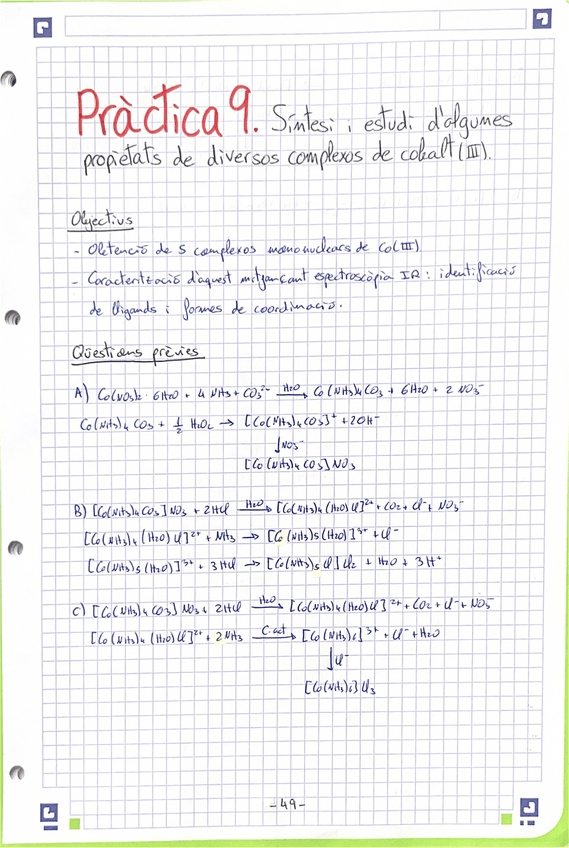 Pràctica 9. Síntesi i estudi d'algunes
propietats de diversos complexos de cobalt (III).
Objectius
- Obtenció de 5 complexos mononuclears de Co(III).
- Caracterització d'aquest mitjançant espectroscòpia IR: identificació
de lligands i formes de coordinació.
Qüestions prèvies
A) Co(NO3)2 · 6H2O + 4 NH3 + CO3²⁻ —H2O→ Co(NH3)4CO3 + 6H2O + 2 NO3⁻
Co(NH3)4 CO3 + 1/2 H2O2 → [Co(NH3)4CO3]⁺ + 2OH⁻
↓NO3⁻
[Co(NH3)4 CO3]NO3
B) [Co(NH3)4CO3]NO3 + 2HCl —H2O→ [Co(NH3)4(H2O)Cl]²⁺ + CO2 + Cl⁻ + NO3⁻
[Co(NH3)4(H2O)Cl]²⁺ + NH3 → [Co(NH3)5(H2O)]³⁺ + Cl⁻
[Co(NH3)5(H2O)]³⁺ + 3HCl → [Co(NH3)5Cl]Cl2 + H2O + 3H⁺
C) [Co(NH3)4CO3]NO3 + 2HCl —H2O→ [Co(NH3)4(H2O)Cl]²⁺ + CO2 + Cl⁻ + NO3⁻
[Co(NH3)4(H2O)Cl]²⁺ + 2NH3 —C.act→ [Co(NH3)6]³⁺ + Cl⁻ + H2O
↓Cl⁻
[Co(NH3)6]Cl3
-49-